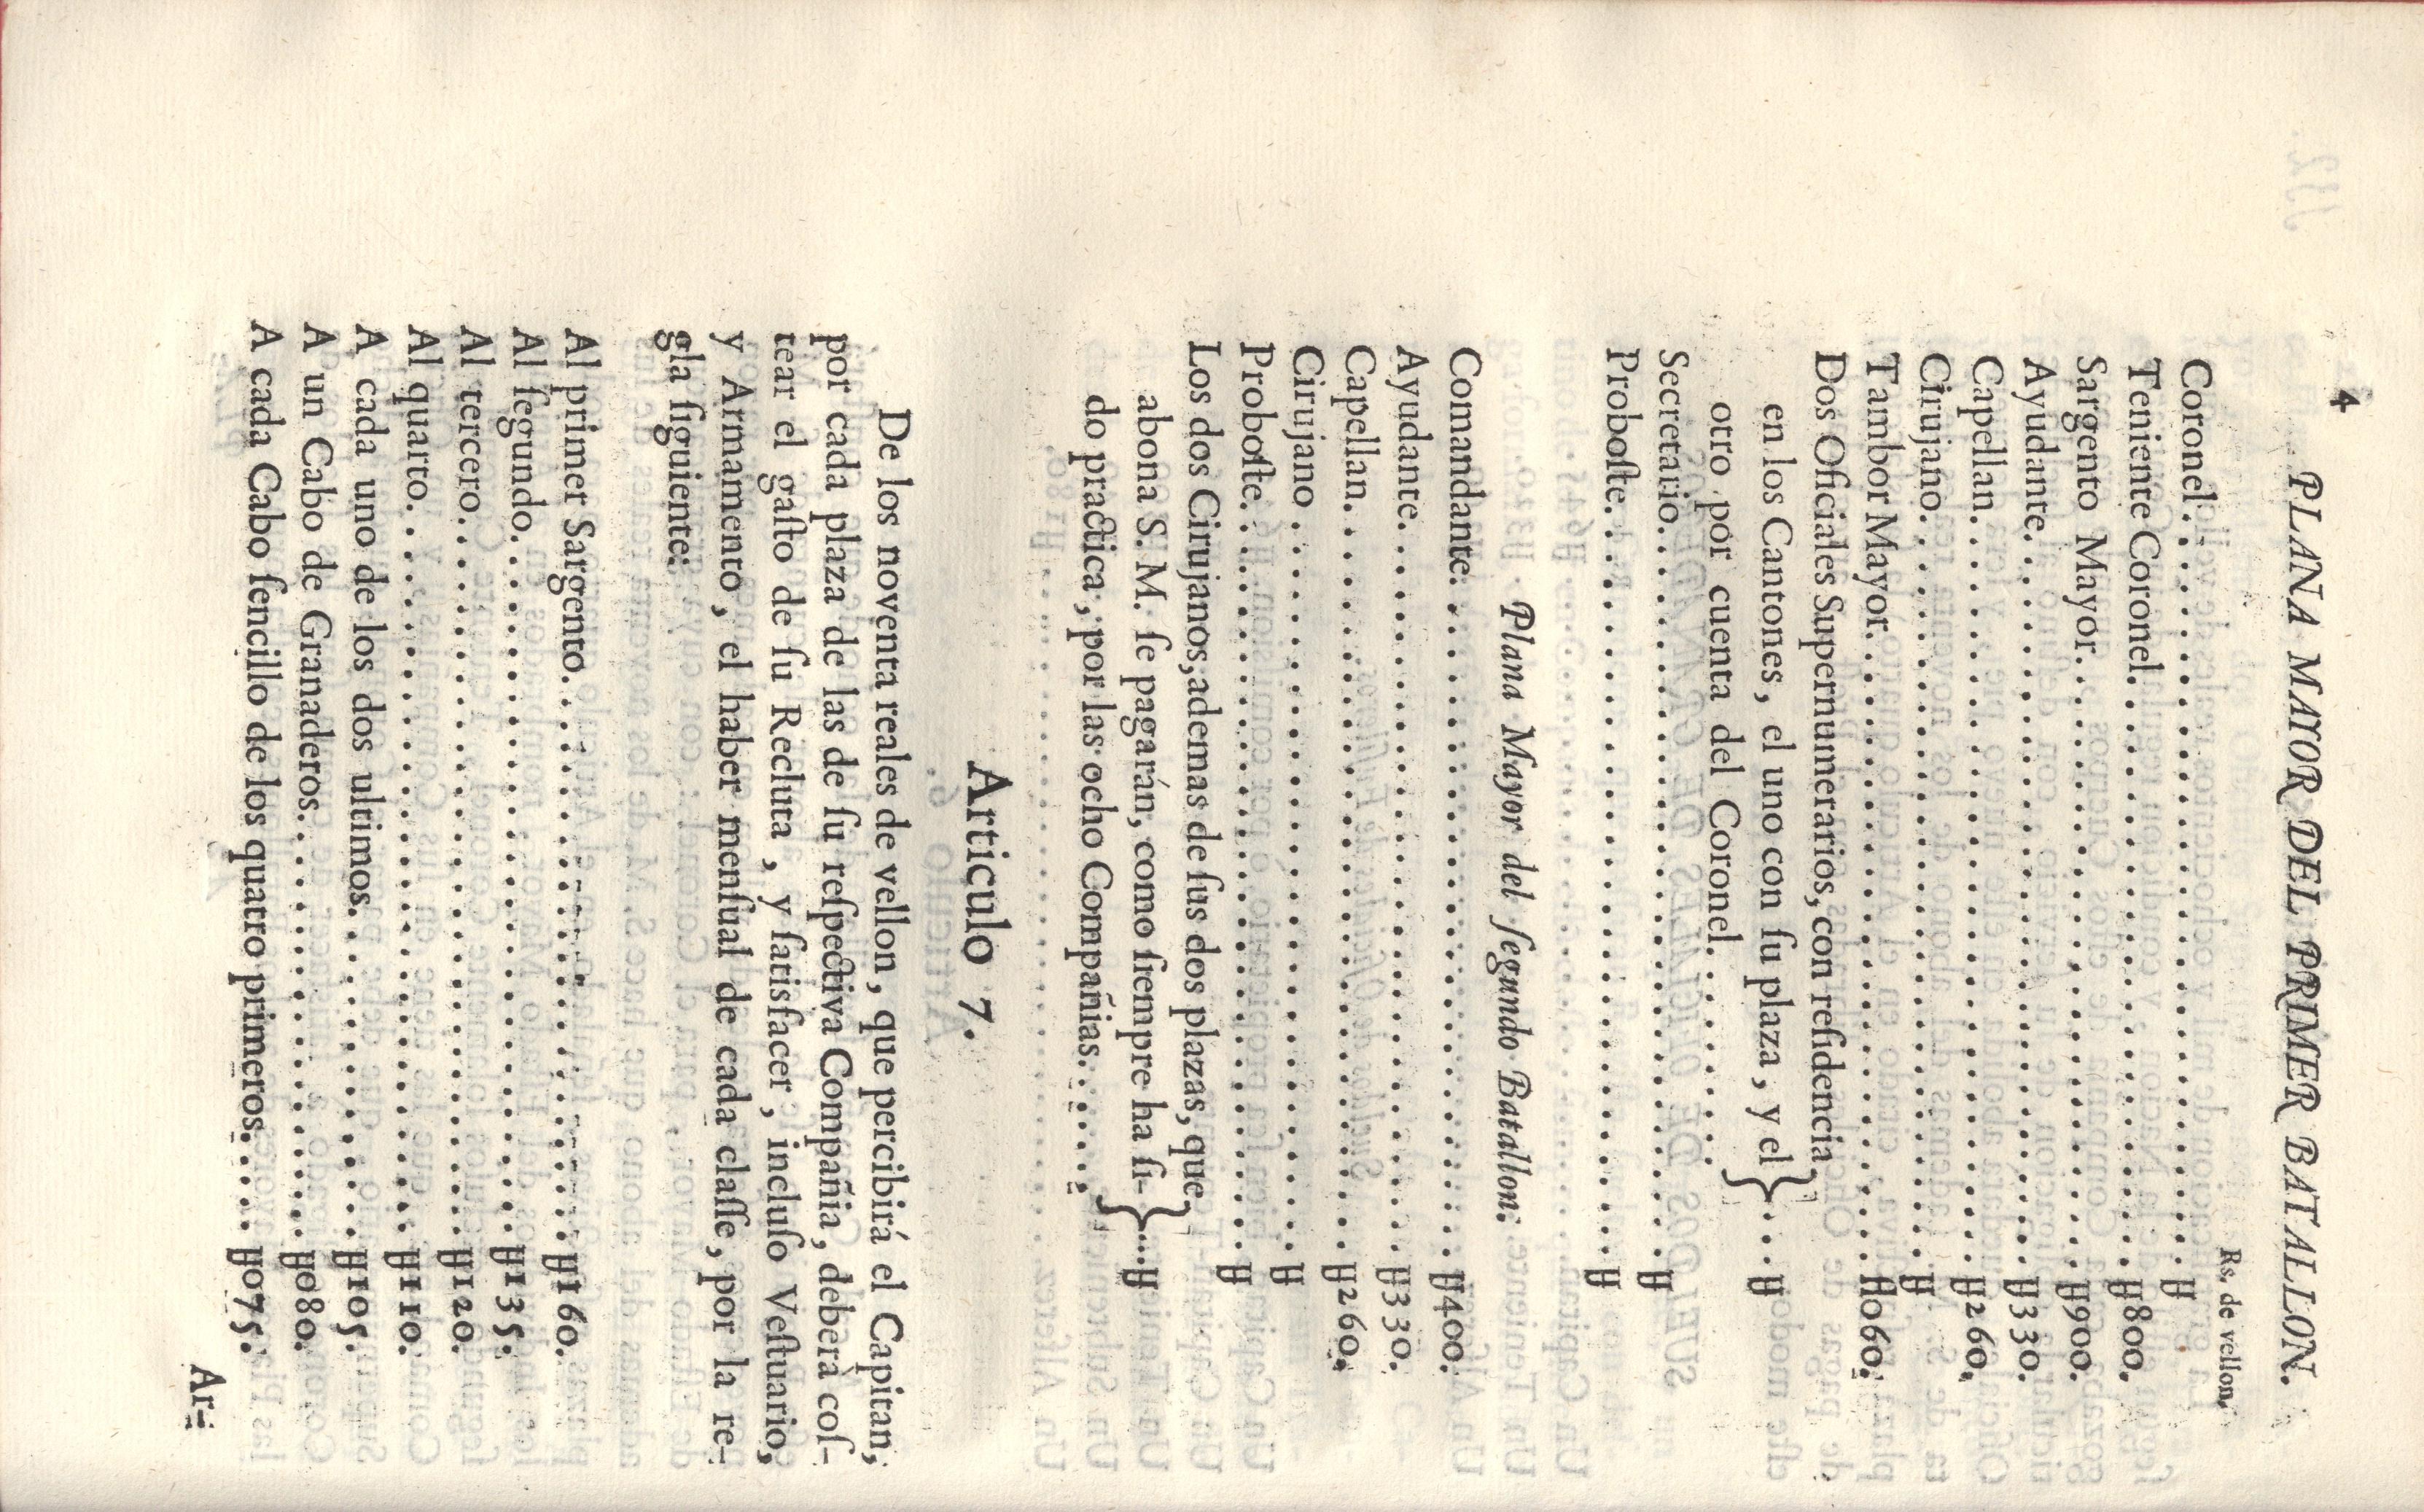 4
PLANA MAYOR DEL PRIMER BATALLON.
Rs. de vellon.
Coronel........................ U
Teniente Coronel........................ U800.
Sargento Mayor........................ U900.
Ayudante........................ U330.
Capellan........................ U260.
Cirujano........................ U
Tambor Mayor........................ U060.
Dos Oficiales Supernumerarios, con reſidencia
en los Cantones, el uno con ſu plaza, y el }... U
otro por cuenta del Coronel..........
Secretario........................ U
Proboſte........................ U
Plana Mayor del ſegundo Batallon.
Comandante........................ U400.
Ayudante........................ U330.
Capellan........................ U260.
Cirujano........................ U
Proboſte........................ U
Los dos Cirujanos, ademas de ſus dos plazas, que
abona S. M. ſe pagarán, como ſiempre ha ſi- }... U
do practica, por las ocho Compañias.......
Articulo 7.
De los noventa reales de vellon, que percibirá el Capitan,
por cada plaza de las de ſu reſpectiva Compañia, deberà coſ-
tear el gaſto de ſu Recluta, y ſatisfacer, incluſo Veſtuario,
y Armamento, el haber menſual de cada claſſe, por la re-
gla ſiguiente:
Al primer Sargento........................ U160.
Al ſegundo........................ U135.
Al tercero........................ U120.
Al quarto........................ U110.
A cada uno de los dos ultimos............... U105.
A un Cabo de Granaderos................ U080.
A cada Cabo ſencillo de los quatro primeros...... U075.
Ar-